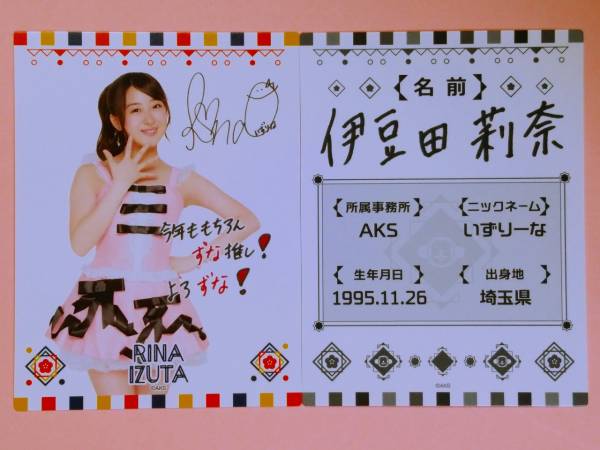 Rina
今年ももちろん
ずな推し!
よろずな!
RINA
IZUTA
©AKS
【名前】
伊豆田莉奈
【所属事務所】
AKS
【ニックネーム】
いずりーな
【生年月日】
1995.11.26
【出身地】
埼玉県
©AKS